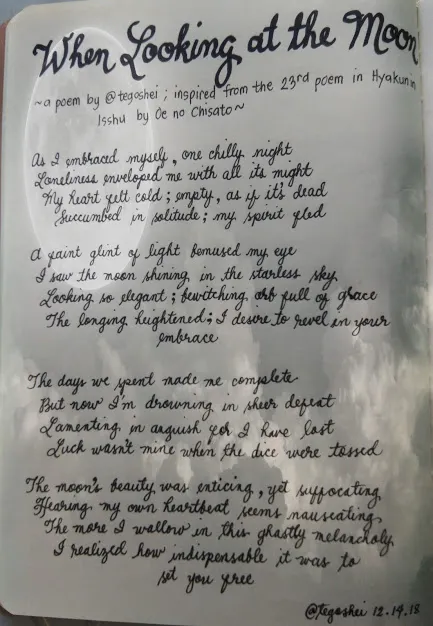 When Looking at the Moon
~a poem by @tegoshei ; inspired from the 23rd poem in Hyakunin
Isshu by Oe no Chisato~
As I embraced myself, one chilly night
Loneliness enveloped me with all its might
My heart felt cold ; empty, as if it's dead
Succumbed in solitude ; my spirit fled
A faint glint of light bemused my eye
I saw the moon shining in the starless sky
Looking so elegant ; bewitching orb full of grace
The longing heightened ; I desire to revel in your
embrace
The days we spent made me complete
But now I'm drowning in sheer defeat
Lamenting in anguish for I have lost
Luck wasn't mine when the dice were tossed
The moon's beauty was enticing, yet suffocating
Hearing my own heartbeat seems nauseating
The more I wallow in this ghastly melancholy
I realized how indispensable it was to
set you free
@tegoshei 12.14.18